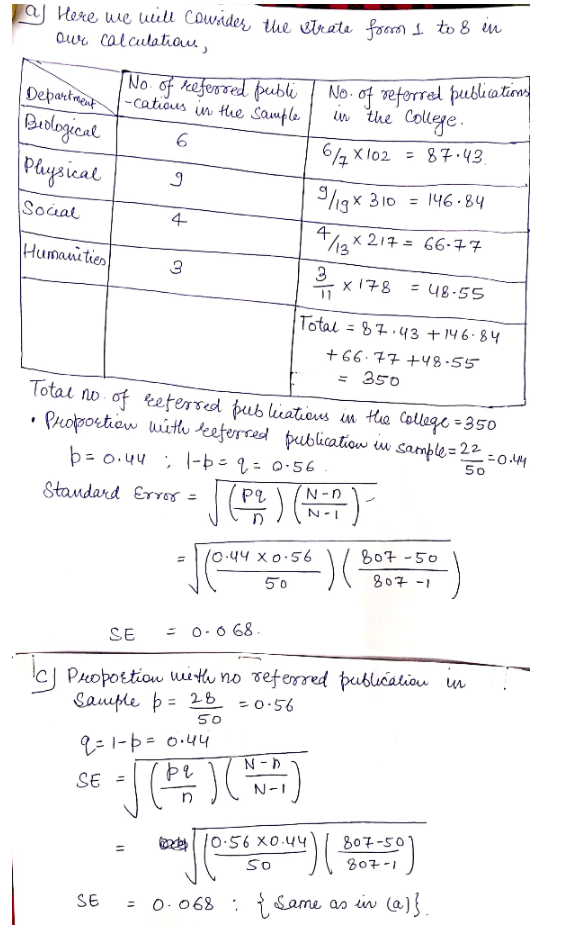 a) Here we will consider the strata from 1 to 8 in
our calculations,
Department
No. of referred publi
-cations in the Sample
No. of referred publications
in the College.
Biological
6
6/7 × 102 = 87.43.
Physical
9
9/19 × 310 = 146.84
Social
4
4/13 × 217 = 66.77
Humanities
3
3/11 × 178 = 48.55
Total = 87.43 + 146.84
+ 66.77 + 48.55
= 350
Total no. of referred publications in the College = 350
• Proportion with referred publication in sample = 22/50 = 0.44
p = 0.44 ; 1-p = q = 0.56
Standard Error = √(pq/n)(N-n/N-1)
= √(0.44 × 0.56/50)(807-50/807-1)
SE = 0.068.
c) Proportion with no referred publication in
Sample p = 28/50 = 0.56
q = 1-p = 0.44
SE = √(pq/n)(N-n/N-1)
= √(0.56 × 0.44/50)(807-50/807-1)
SE = 0.068 : {Same as in (a)}.